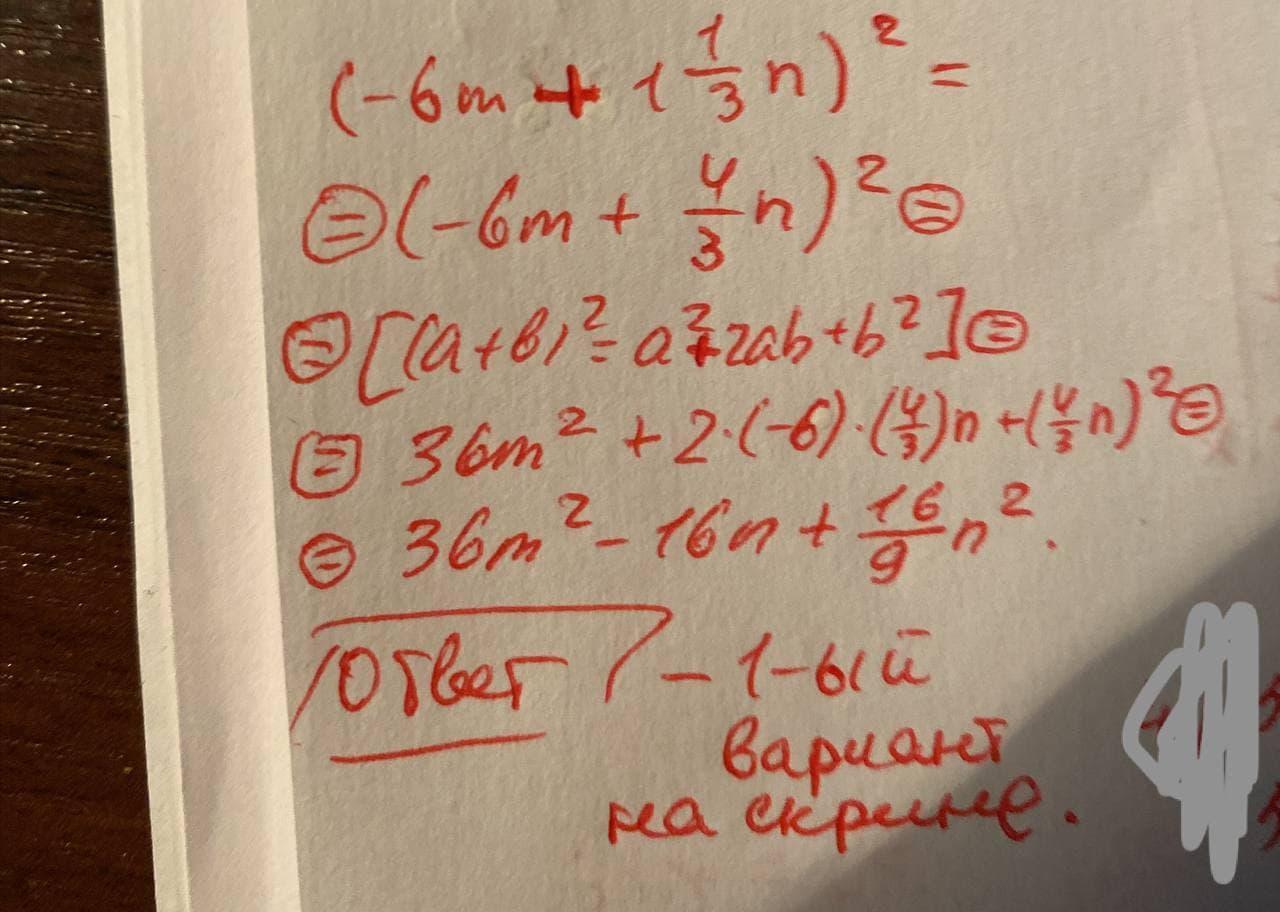 (-6m + 1 1/3 n)² =
= (-6m + 4/3 n)² =
= [(a+b)² = a²+2ab+b²] =
= 36m² + 2·(-6)·(4/3)n + (4/3 n)² =
= 36m² - 16n + 16/9 n².
Ответ - 1-ый
вариант
на скрине.